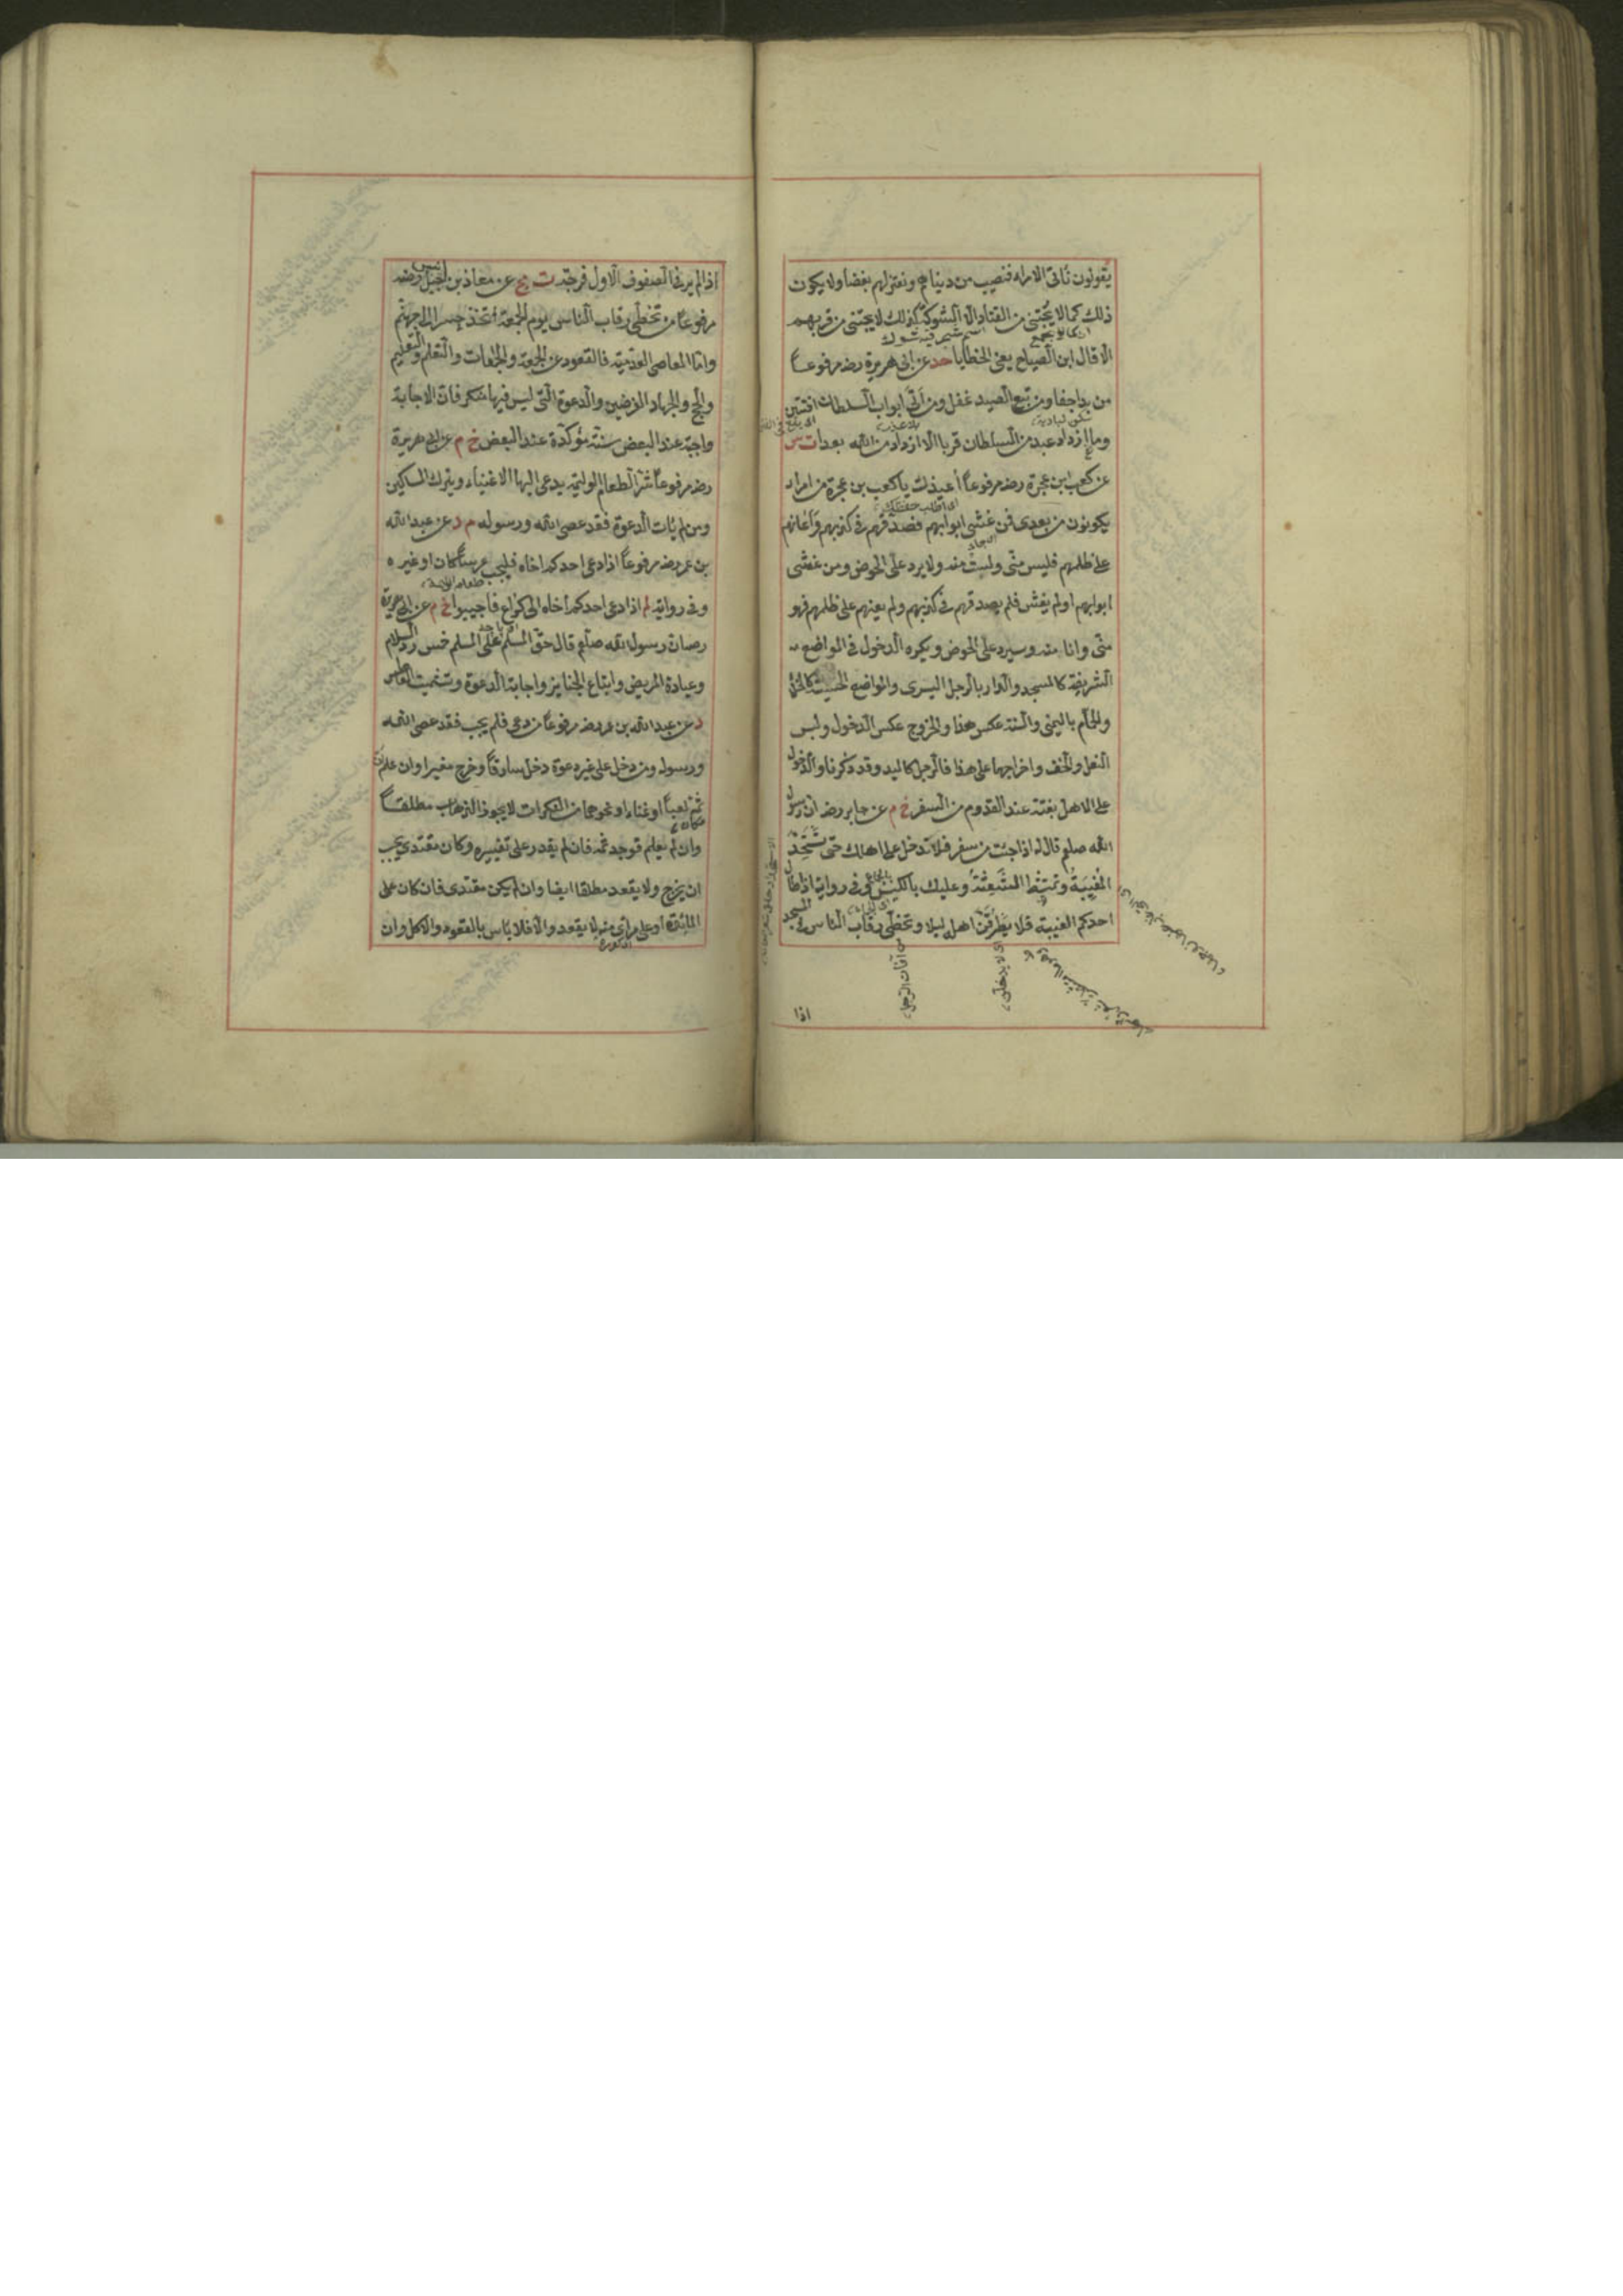 يقولون نأتى الامراء فنصيب من دنياهم ونعتزلهم بغضا ولا يكون
ذلك كما لا يجتنى من القتاد الا الشوك كذلك لا يجتنى من قربهم
اى كما لا يجمع
اسم شجر فيه شوك
الا قال ابن الصباح يعنى الخطايا حد عن ابى هريرة رضه مرفوعا
من بدا جفا ومن تبع الصيد غفل ومن اتى ابواب السلطان افتتن
سكن البادية
وما ازداد عبد من السلطان قربا الا ازداد من الله بعدا ت س
عن كعب ابن عجرة رضه مرفوعا أعيذك يا كعب بن عجرة من امراء
يكونون من بعدى فمن غشى ابوابهم فصدقهم فى كذبهم وأعانهم
اى اطلب حفظك
على ظلمهم فليس منى ولست منه ولا يرد على الحوض ومن غشى
اى جاء
ابوابهم او لم يغش فلم يصدقهم فى كذبهم ولم يعنهم على ظلمهم فهو
منى وانا منه وسيرد على الحوض ويكره الدخول فى المواضع
الشريفة كالمسجد والدار بالرجل اليسرى والمواضع الخسيسة كالخلاء
والحمام باليمنى والسنة عكس هذا والخروج عكس الدخول ولبس
النعل والخف واخراجهما على هذا فالرجل كاليد وقد ذكرنا والدخول
على الاهل بغتة عند القدوم من السفر خ م عن جابر رضه ان رسول
الله صلعم قال له اذا جئت من سفر فلا تدخل على اهلك حتى تستحد
المغيبة وتمتشط الشعثة وعليك بالكيس وفى رواية اذا طال
احدكم الغيبة فلا يطرقن اهله ليلا وتخطى رقاب الناس فى المسجد
من آفات الرجل
اى لا يدخلن
اذا
اذا لم ير فى الصفوف الاول فرجة ت مج عن معاذ بن جبل رضه
انيس
مرفوعا من تخطى رقاب الناس يوم الجمعة اتخذ جسرا الى جهنم
واما المعاصى العدمية فالقعود عن الجمعة والجماعات والتعلم والتعليم
والحج والجهاد الفرضين والدعوة التى ليس فيها منكر فان الاجابة
واجبة عند البعض سنة مؤكدة عند البعض خ م عن ابى هريرة
رضه مرفوعا شر الطعام الوليمة يدعى اليها الاغنياء ويترك المساكين
ومن لم يأت الدعوة فقد عصى الله ورسوله م د عن عبد الله
بن عمر رضه مرفوعا اذا دعى احدكم اخاه فليجب عرسا كان او غيره
وفى رواية م اذا دعى احدكم اخاه الى كراع فاجيبوا خ م عن ابى هريرة
رض ان رسول الله صلعم قال حق المسلم على المسلم خمس رد السلام
وعيادة المريض واتباع الجنايز واجابة الدعوة وتشميت العاطس
د عن عبد الله بن عمر رضه مرفوعا من دعى فلم يجب فقد عصى الله
ورسوله ومن دخل على غير دعوة دخل سارقا وخرج مغيرا وان علم ان
ثمة لعبا او غناء او نحوهما من المنكرات لا يجوز الذهاب مطلقا
وان لم يعلم فوجد ثمة فان لم يقدر على تغييره وكان مقتدى يجب
ان يخرج ولا يقعد مطلقا ايضا وان لم يكن مقتدى فان كان على
المائدة او على مرأى منه لا يقعد والا فلا بأس بالقعود والاكل وان